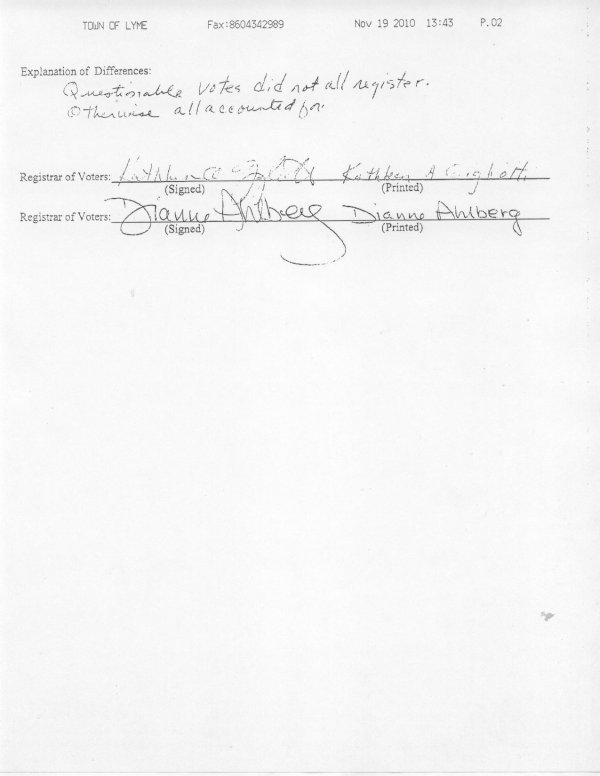 TOWN OF LYME Fax:8604342989 Nov 19 2010 13:43 P.02
Explanation of Differences:
Questionable votes did not all register.
Otherwise all accounted for
Registrar of Voters: Kathleen A
(Signed) (Printed)
Registrar of Voters: Dianne Ahlberg Dianne Ahlberg
(Signed) (Printed)